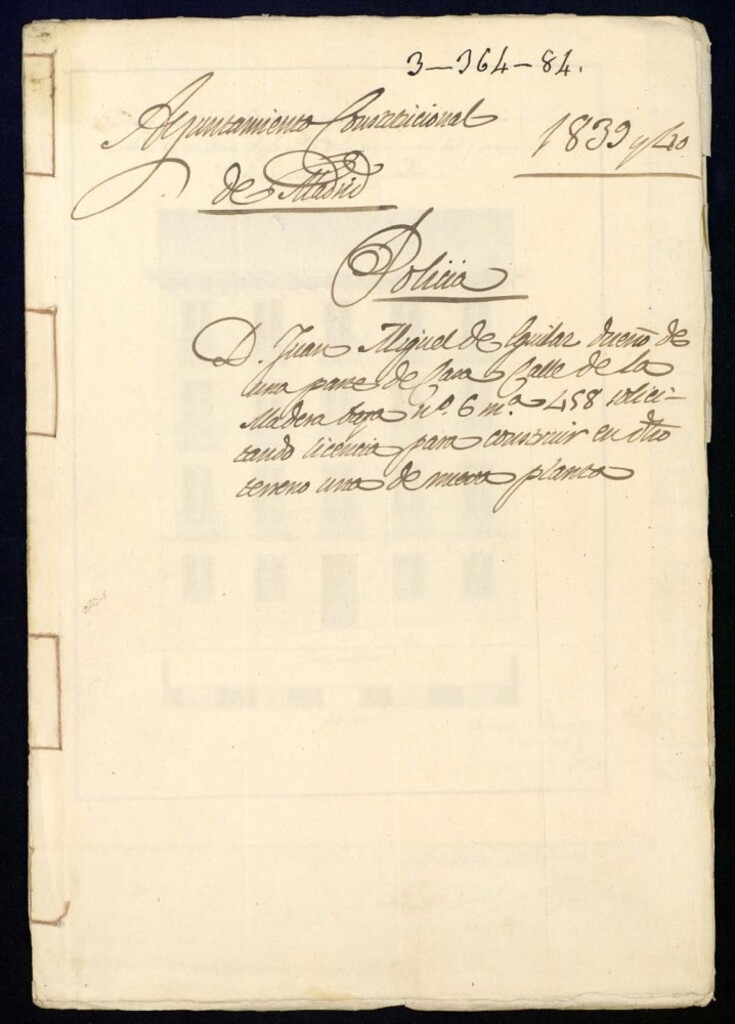 3-364-84.
Ayuntamiento Constitucional
1839 y 40
de Madrid
Policia
D. Juan Miguel de Eguilaz dueño de
una parte de Casa Calle de la
Madera baja nº. 6 mª. 458 solici-
tando licencia para construir en dho
terreno una de nueva planta